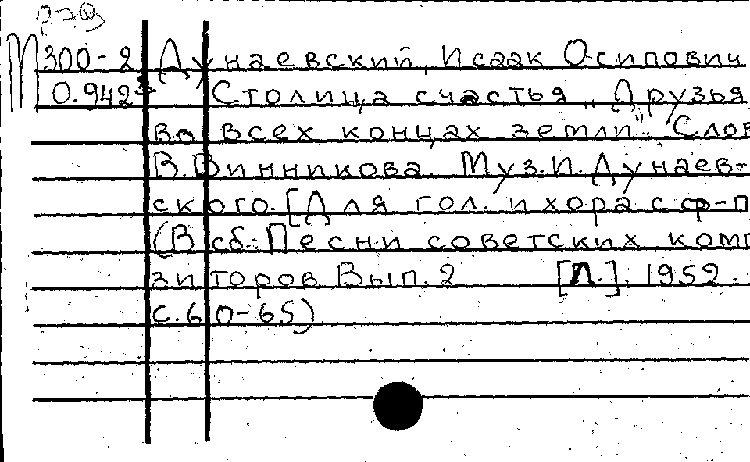 М 300-2 Дунаевский, Исаак Осипович
0.942 Столица счастья „Друзья
во всех концах земли". Слов
В. Винникова. Муз. И. Дунаев-
ского. [Для гол. и хора с ф-п
(В сб.: Песни советских комп
зиторов Вып. 2 [Л.]. 1952.
с. 60-65)